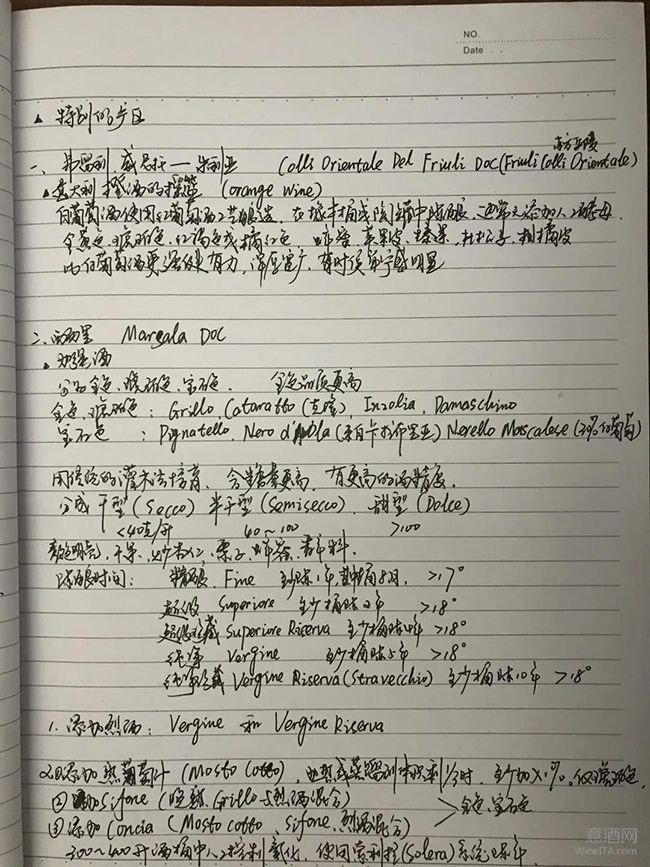 NO.
Date . .
▲ 特别的产区
东方丘陵
一、弗留利 威尼托—朱利亚 Colli Orientale Del Friuli DOC (Friuli Colli Orientale)
▲意大利橙酒的摇篮 (orange wine)
白葡萄酒使用红葡萄酒工艺酿造,在橡木桶或陶罐中陈酿,通常不添加人工酵母.
金黄色、琥珀色、红褐色或橘红色 蜂蜜、苹果皮、榛果、杜松子、柑橘皮
比白葡萄酒更强健更有力,深厚宽广,有时候单宁感明显
二、西西里 Marsala DOC
▲加强酒
分为金色、琥珀色、宝石色. 金色品质更高
金色、琥珀色:Grillo, Cataratto (克隆), Inzolia, Damaschino
宝石色:Pignatello, Nero d'Avola (来自卡拉布里亚) Nerello Mascalese (30%白葡萄)
用传统的灌木法培育、含糖量更高,有更高的酒精度.
分成 干型 (Secco) 半干型 (Semisecco) 甜型 (Dolce)
<40克/升 40~100 >100
颜色明亮,干果、杏仁、栗子、蜂蜜、香料.
陈酿时间: 精酿 Fine 至少陈1年,其中桶8月, >17°
超级 Superiore 至少桶陈2年 >18°
超级珍藏 Superiore Riserva 至少桶陈4年 >18°
纯净 Vergine 至少桶陈5年 >18°
纯净珍藏 Vergine Riserva (Stravecchio) 至少桶陈10年 >18°
1. 添加烈酒: Vergine 和 Vergine Riserva
2.①添加煮葡萄汁 (Mosto Cotto), 体积剩1/3时, 至少加>1%. 仅琥珀色
②添加Sifone (晚熟Grillo与烈酒混合)
> 金色、宝石色
③添加Concia (Mosto cotto, Sifone, 烈酒混合)
300~400升酒桶中人工控制氧化, 使用索利拉(Solera)系统
意酒网
WineITA.COM